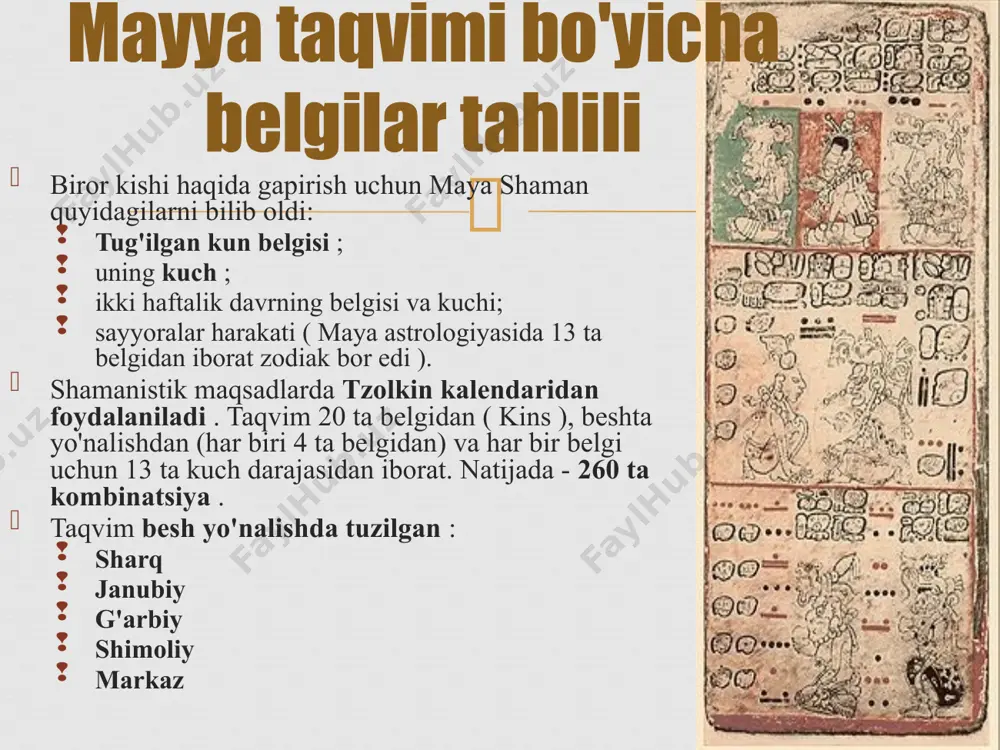 Mayya taqvimi bo'yicha
belgilar tahlili
Biror kishi haqida gapirish uchun Maya Shaman
quyidagilarni bilib oldi:
Tug'ilgan kun belgisi ;
uning kuch ;
ikki haftalik davrning belgisi va kuchi;
sayyoralar harakati ( Maya astrologiyasida 13 ta
belgidan iborat zodiak bor edi ).
Shamanistik maqsadlarda Tzolkin kalendaridan
foydalaniladi . Taqvim 20 ta belgidan ( Kins ), beshta
yo'nalishdan (har biri 4 ta belgidan) va har bir belgi
uchun 13 ta kuch darajasidan iborat. Natijada - 260 ta
kombinatsiya .
Taqvim besh yo'nalishda tuzilgan :
Sharq
Janubiy
G'arbiy
Shimoliy
Markaz
FaylHub.uz
FaylHub.uz
FaylHub.uz
FaylHub